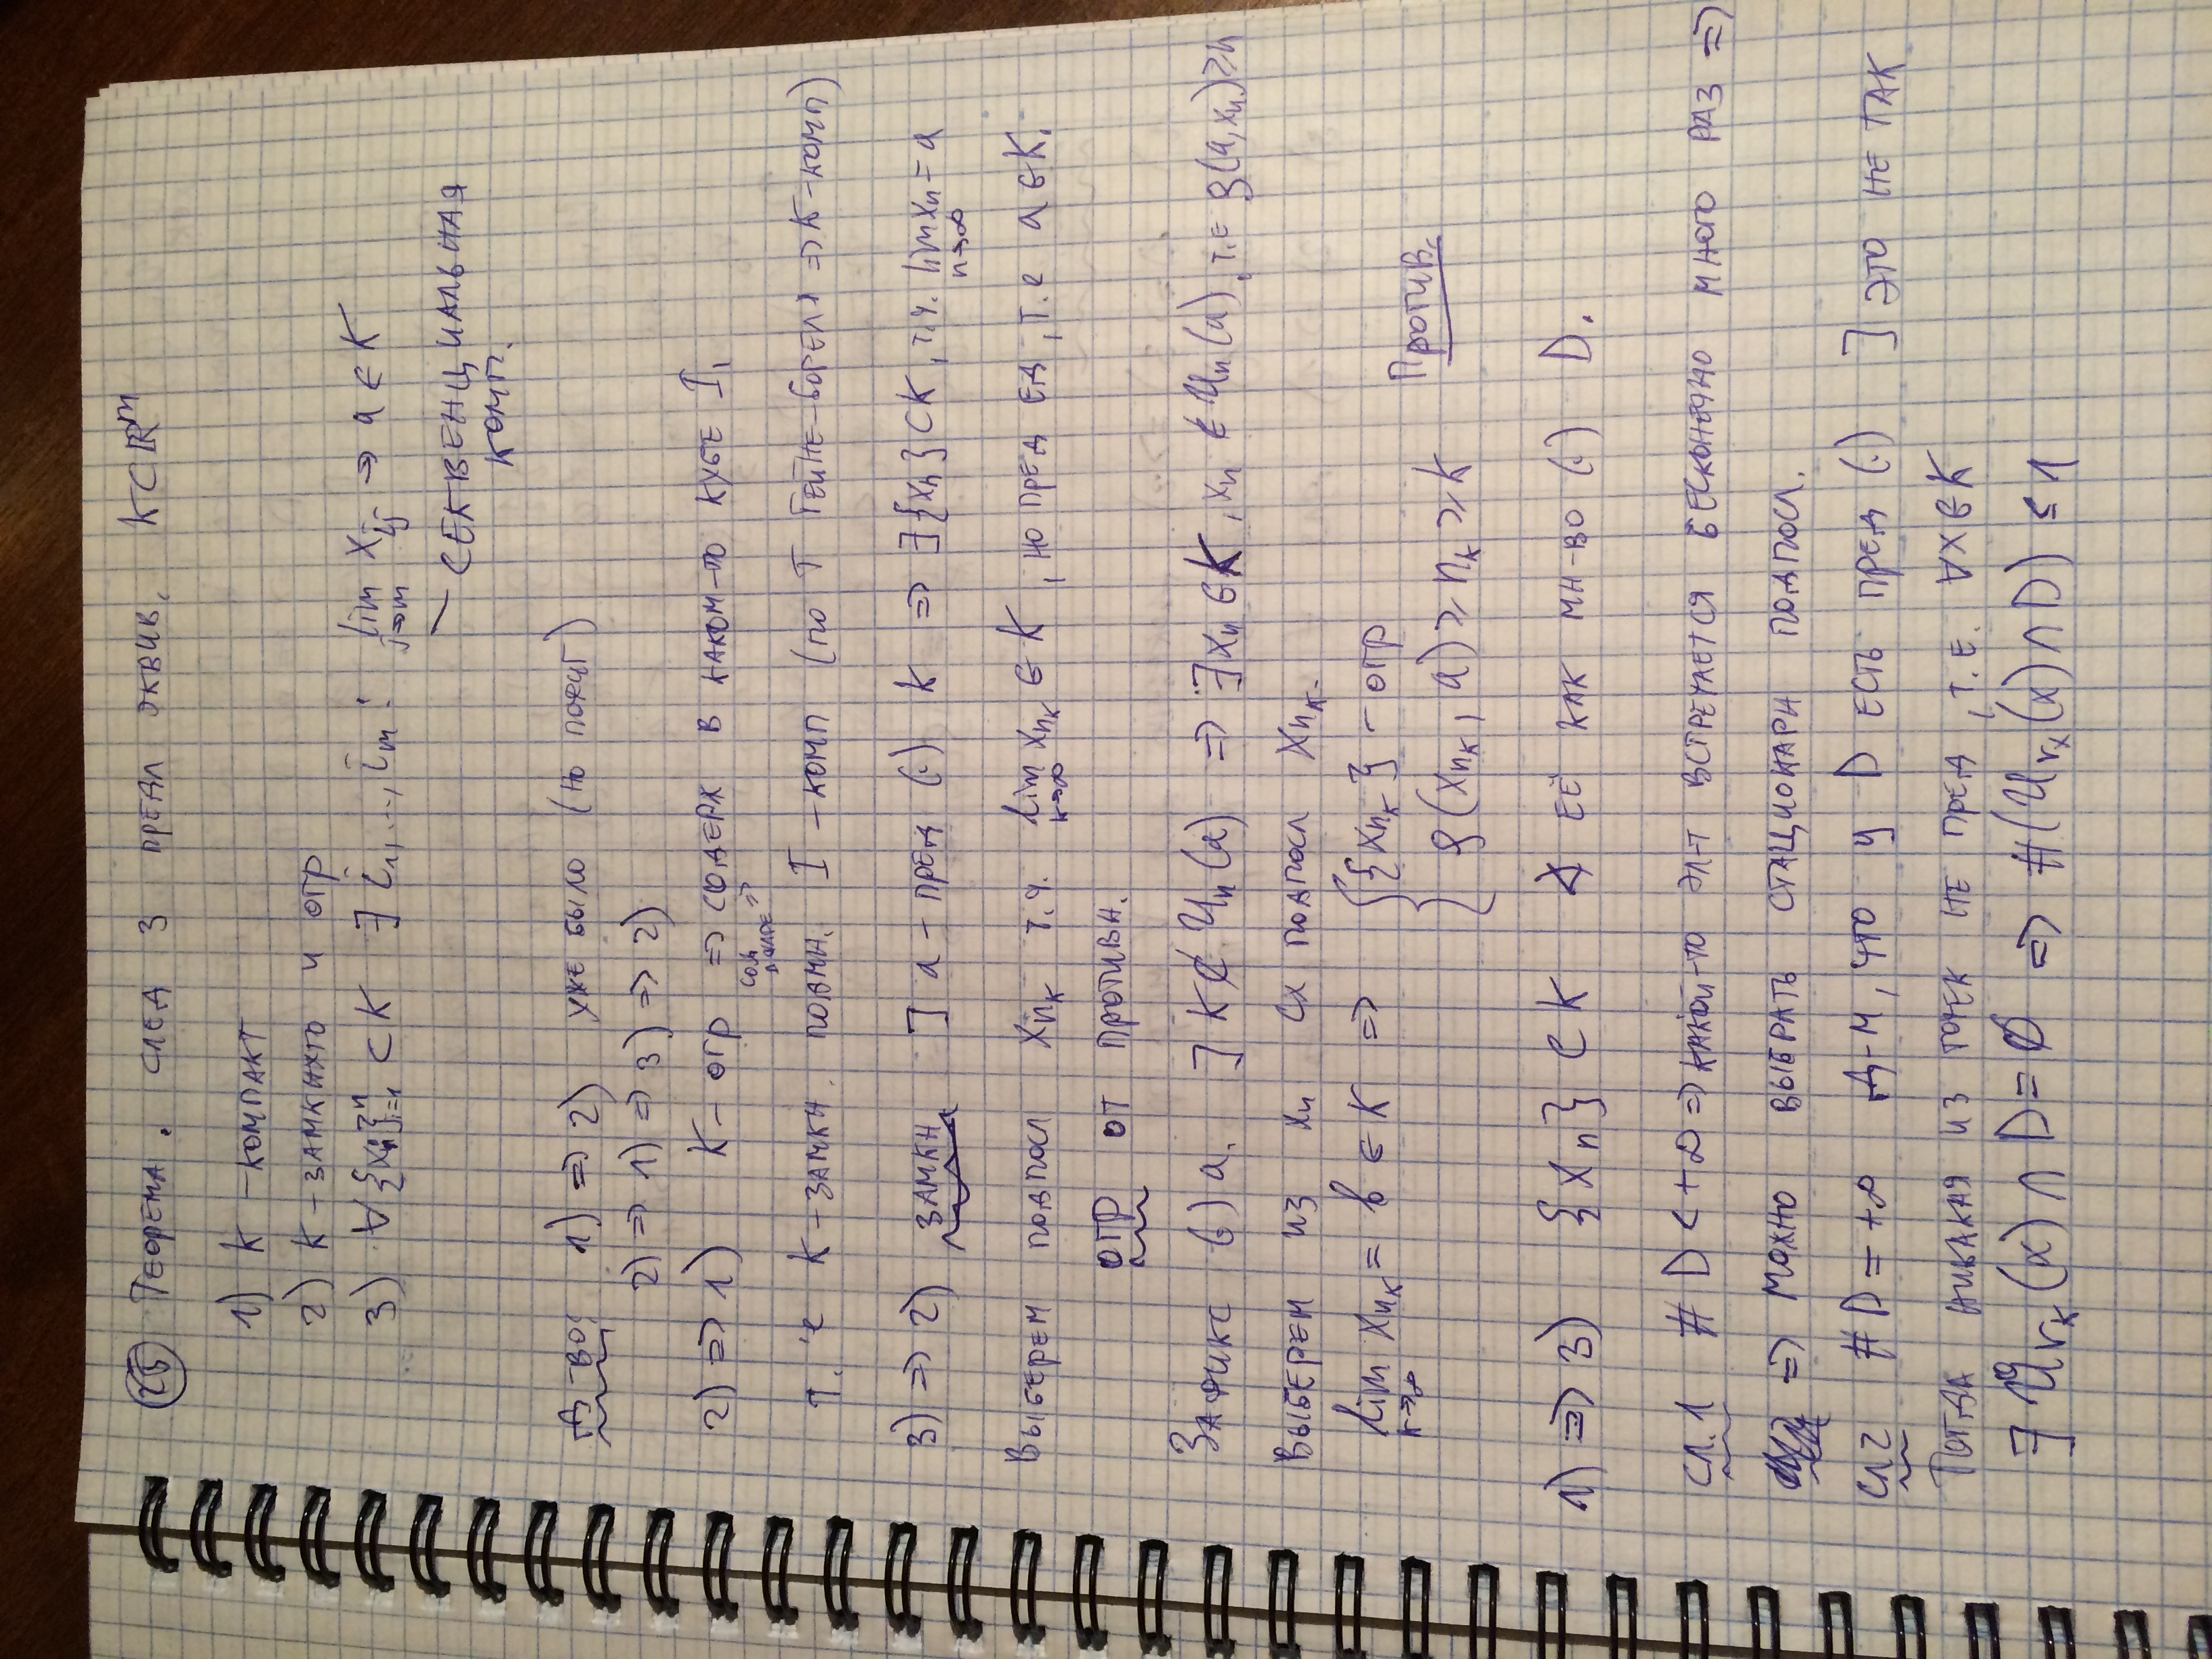 25 Теорема. след 3 предл эквив. K⊂ℝᵐ
1) K – компакт
2) K – замкнуто и огр
3) ∀{xᵢ}ⁿᵢ₌₁ ⊂ K ∃ i₁,...,iₘ : lim_{j→m} x_{i_j} → a ∈ K
– секвенциальная
комп.
Д-во: 1) ⇒ 2) уже было (но )
2) ⇒ 1) ⇒ 3) ⇒ 2)
2) ⇒ 1) K – огр ⇒ содерж в каком-то кубе I,
сод в шаре ⇒
т. е K – замкн. подмн. I – комп (по т Гейне–Бореля ⇒ K–комп)
3) ⇒ 2) замкн ] a – пред (·) K ⇒ ∃{xₙ} ⊂ K, т.ч. lim_{n→∞} xₙ = a
Выберем подпосл x_{n_k} т.ч. lim_{k→∞} x_{n_k} ∈ K, но пред ед, т.е a ∈ K.
огр от противн.
Зафикс (·) a. ] K ⊄ Uₙ(a) ⇒ ∃ xₙ ∈ K, xₙ ∉ Uₙ(a), т.е ρ(a, xₙ) ≥ n
Выберем из xₙ сх подпосл x_{n_k}.
lim_{k→∞} x_{n_k} = b ∈ K ⇒ { {x_{n_k}} – огр
ρ(x_{n_k}, a) ≥ n_k ≥ k Против.
1) ⇒ 3) {xₙ} ⊂ K ∢ её как мн-во (·) D.
сл.1 # D < +∞ ⇒ какой-то эл-т встречается бесконечно много раз ⇒
⇒ можно выбрать стационарн подпосл.
сл2 # D = +∞ Д-м, что у D есть пред (·) ] это не так
Тогда никакая из точек не пред, т.е. ∀x ∈ K
∃ Ů_{r_x}(x) ∩ D = ∅ ⇒ #(U_{r_x}(x) ∩ D) ≤ 1